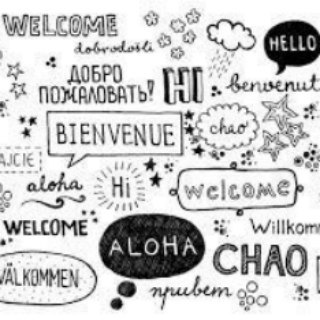 WELCOME
dobrodošli
HELLO
ДОБРО
ПОЖАЛОВАТЬ!
HI
benvenut
BIENVENUE
chao
AJCIE
aloha
Hi
welcome
WELCOME
ALOHA
Willkomm
CHAO
VÄLKOMMEN
привет